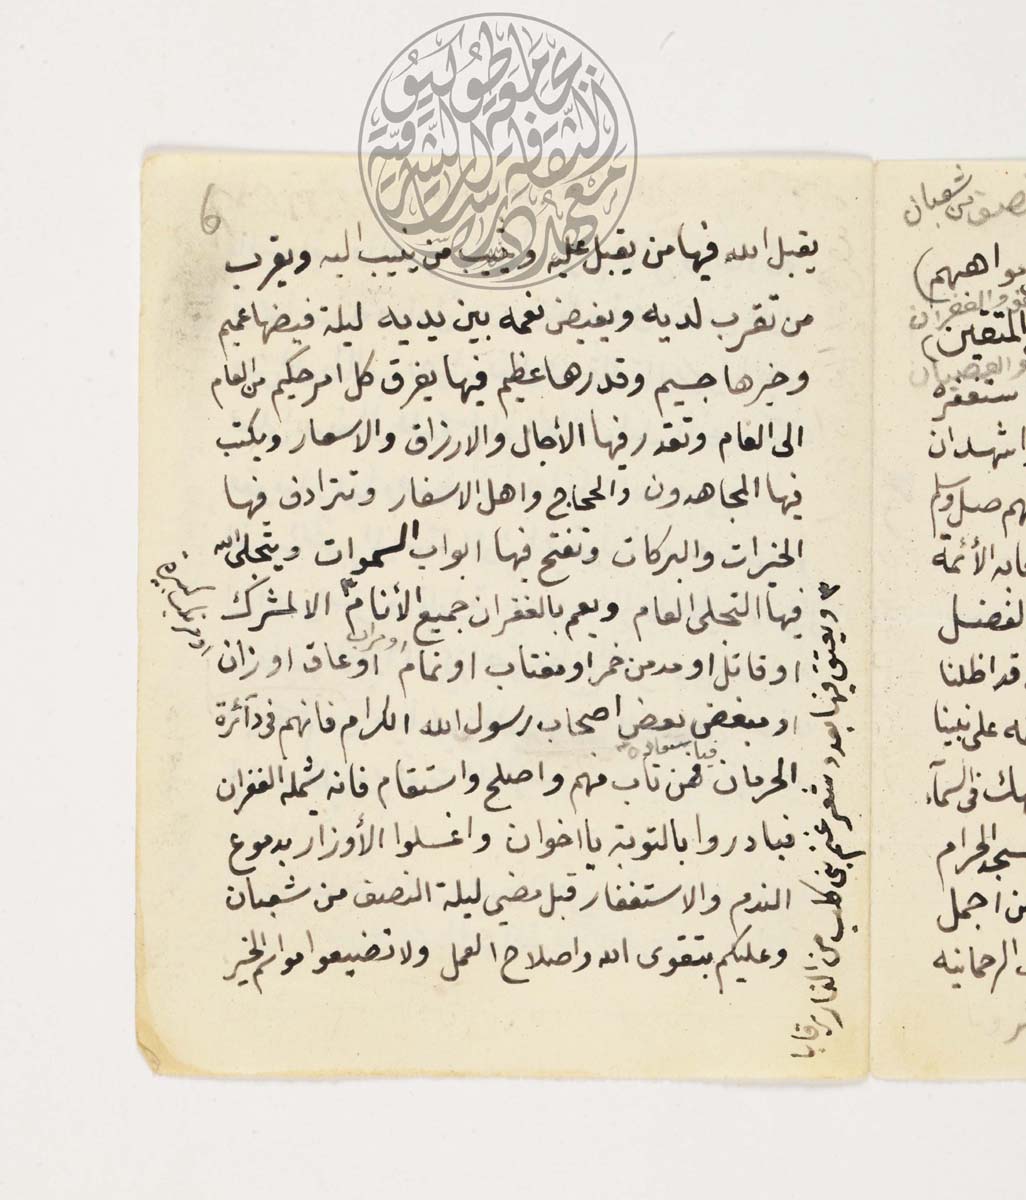 جامعة طوكيو
معهد دراسات الثقافة الشرقية
6
يقبل الله فيها من يقبل عليه وينيب من ينيب اليه ويقرب
من تقرب لديه ويفيض نعمه بين يديه ليلة فيضها عميم
وخيرها جسيم وقدرها عظيم فيها يفرق كل امر حكيم من العام
الى العام وتقدر فيها الأجال والارزاق والاسعار ويكتب
فيها المجاهدون والحجاج واهل الاسفار وتترادف فيها
الخيرات والبركات وتفتح فيها ابواب السموات ويتجلى الله
فيها التجلى العام ويعم بالغفران جميع الأنام الا لمشرك
او قاتل او مدمن خمر او مغتاب او نمام او عاق او زان
او مبغض بعض اصحاب رسول الله الكرام فانهم فى دآئرة
الحرمان فمن تاب منهم واصلح واستقام فانه يشمله الغفران
فبادروا بالتوبة يا اخوان واغسلوا الأوزار بدموع
الندم والاستغفار قبل مضي ليلة النصف من شعبان
وعليكم بتقوى الله واصلاح العمل ولا تضيعوا مواسم الخير
ويعتق فيها بعدد شعر غنم بنى كلب من النار رقابا
او مراب
او مرتكب كبيرة
من شعبان
المتقين
ستغفره
اشهد ان
صل وسلم
الأئمة
قد اظلنا
على نبينا
فى السمآء
الحرام
من اجمل
الرحمانيه